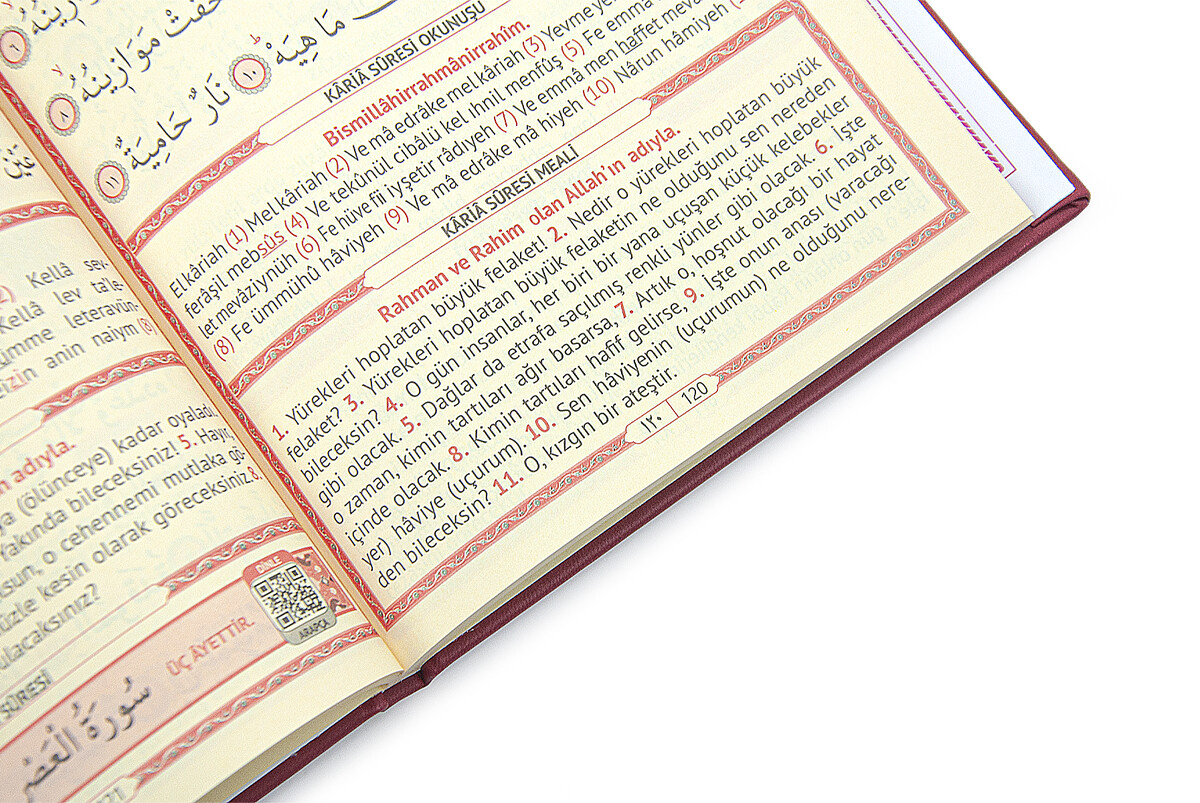 خَفَّتْ مَوَازِينُهُ
مَا هِيَهْ ١٠ نَارٌ حَامِيَةٌ ١١
KÂRİÂ SÛRESİ OKUNUŞU
Bismillâhirrahmânirrahîm.
Elkâriah (1) Melkâriah (2) Ve mâ edrâke melkâriah (3) Yevme
ferâşil mebsûs (4) Ve tekûnül cibâlü kel ıhnil menfûş (5) Fe emmâ
let mevâziynüh (6) Fe hüve fii ıyşetir râdıyeh (7) Ve emmâ men haffet
(8) Fe ümmühû hâviyeh (9) Ve mâ edrâke mâ hiyeh (10) Nârun hâmiyeh
KÂRİÂ SÛRESİ MEALİ
Rahman ve Rahim olan Allah'ın adıyla.
1. Yürekleri hoplatan büyük felaket! 2. Nedir o yürekleri hoplatan büyük
felaket? 3. Yürekleri hoplatan büyük felaketin ne olduğunu sen nereden
bileceksin? 4. O gün insanlar, her biri bir yana uçuşan küçük kelebekler
gibi olacak. 5. Dağlar da etrafa saçılmış renkli yünler gibi olacak. 6. İşte
o zaman, kimin tartıları ağır basarsa, 7. Artık o, hoşnut olacağı bir hayat
içinde olacak. 8. Kimin tartıları hafif gelirse, 9. İşte onun anası (varacağı
yer) hâviye (uçurum). 10. Sen hâviyenin (uçurumun) ne olduğunu nere-
den bileceksin? 11. O, kızgın bir ateştir.
١٢٠ | 120
Kellâ sev-
Kellâ lev ta'le-
ümme leteravün-
izin anin naiym (8)
n adıyla.
ya (ölünceye) kadar oyaladı.
Yakında bileceksiniz! 5. Hayır,
sun, o cehennemi mutlaka gö-
üzle kesin olarak göreceksiniz. 8.
ulacaksınız?
DİNLE
ARAPÇA
SÛRESİ
ÜÇ ÂYETTİR.
سُورَةُ الْعَصْرِ
121